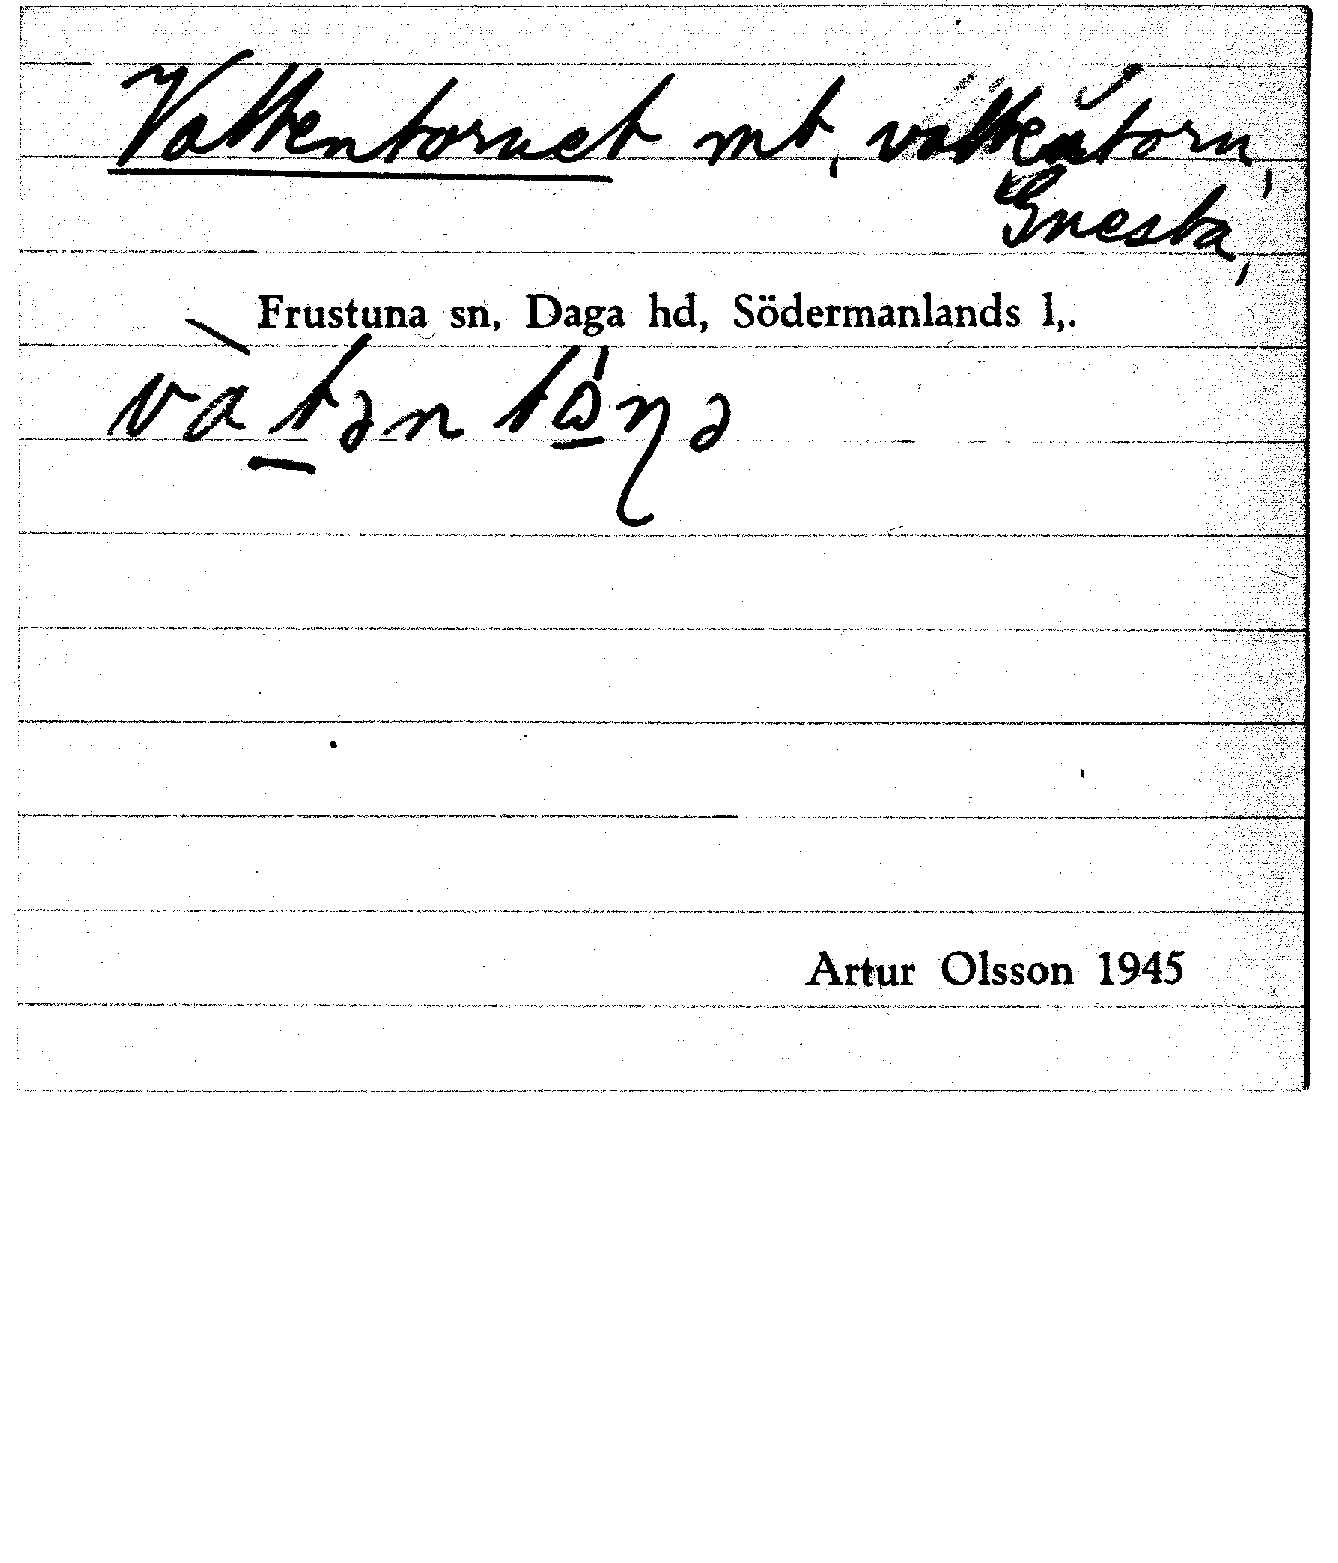 Vattentornet mt, vattentorn,
Gnesta,
Frustuna sn, Daga hd, Södermanlands l,.
Artur Olsson 1945